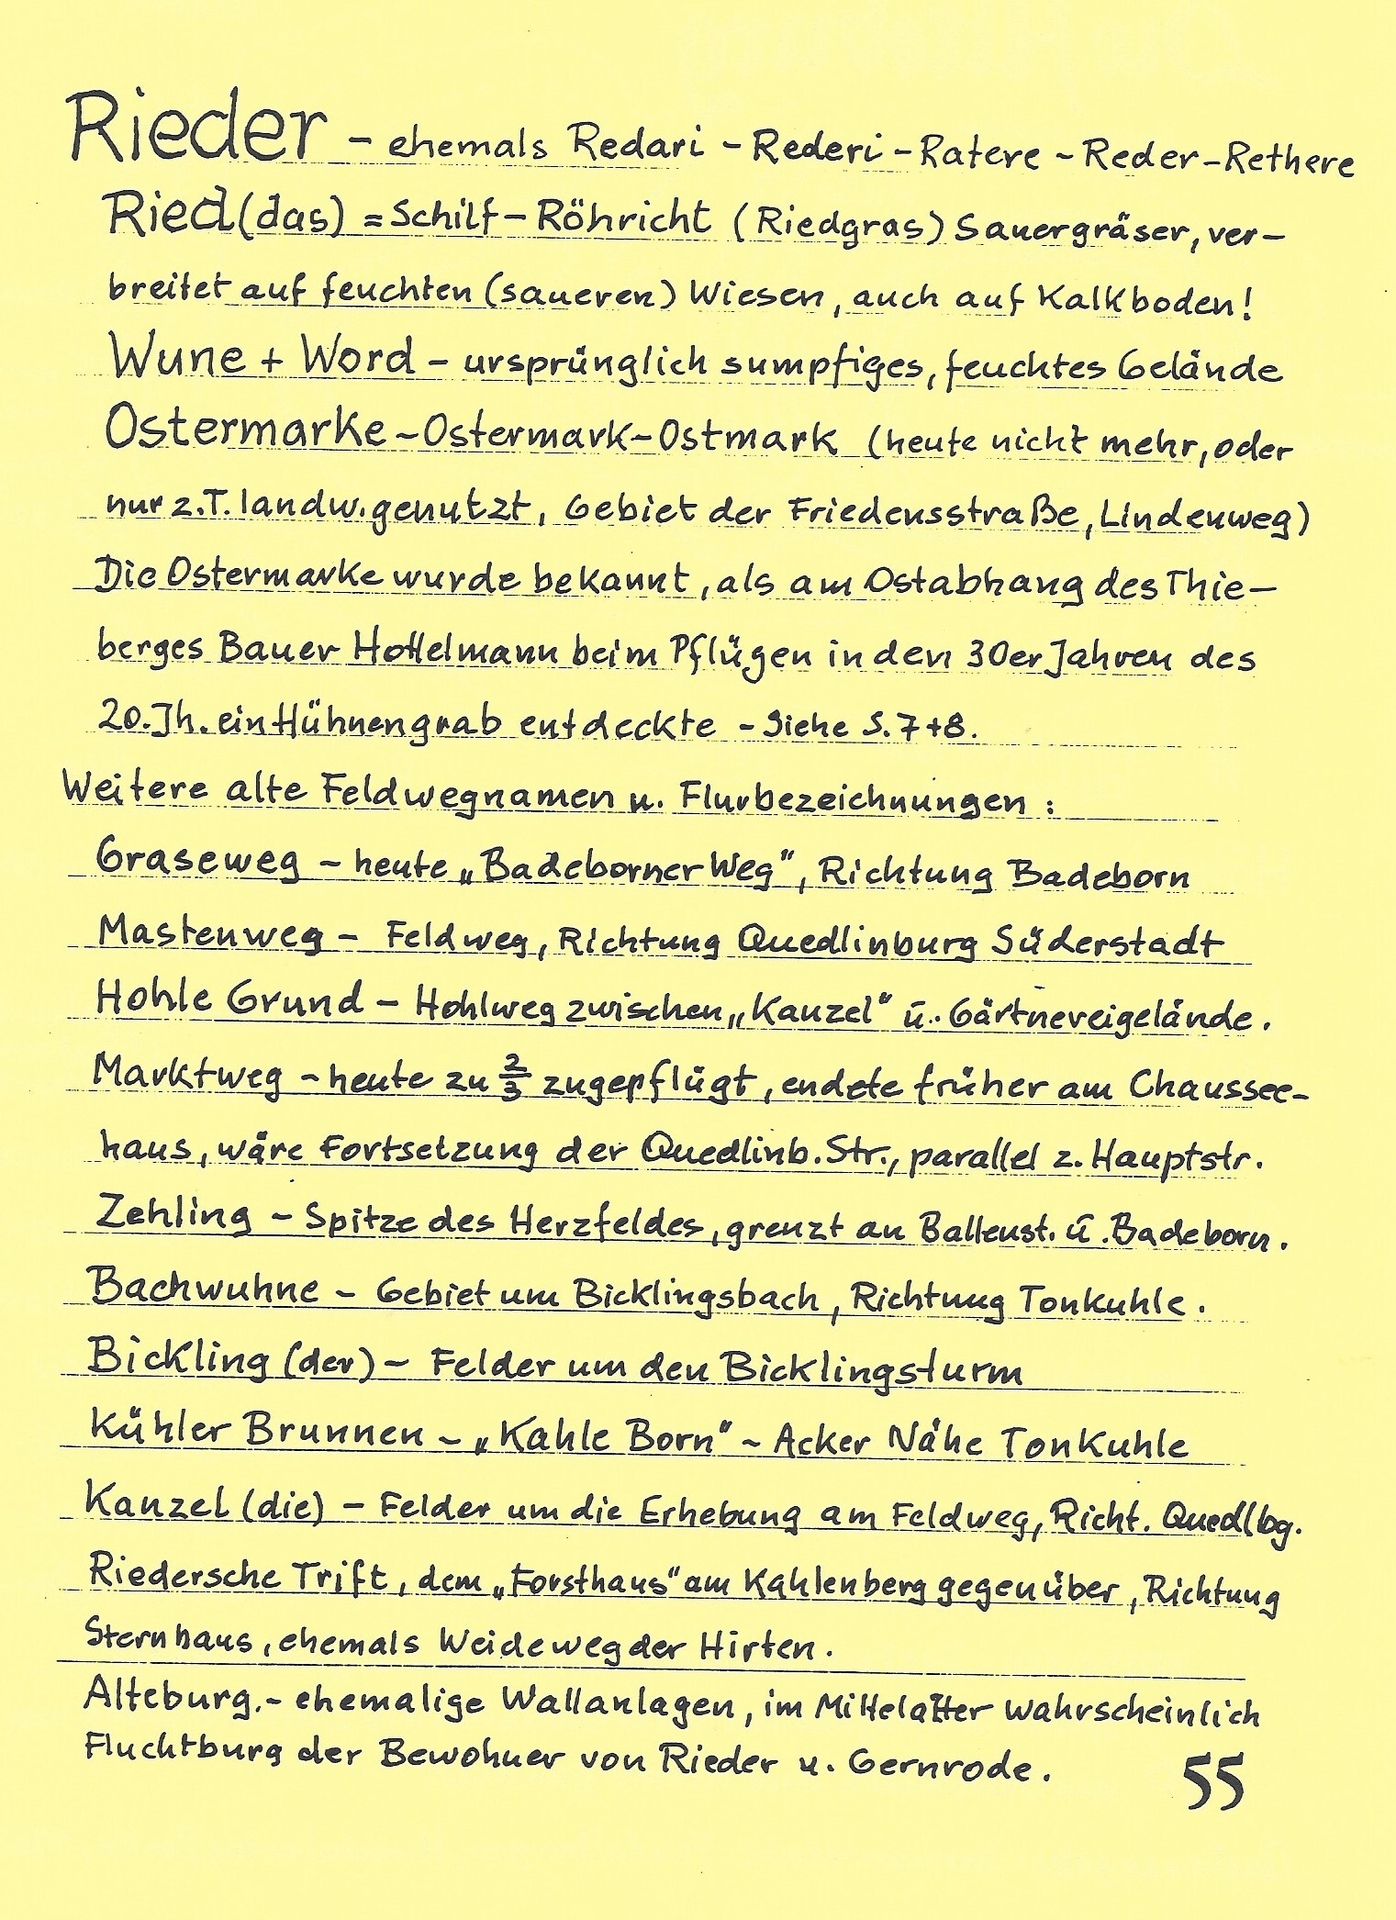 Rieder – ehemals Redari – Rederi – Ratere – Reder – Rethere
Ried (das) = Schilf – Röhricht (Riedgras) Sauergräser, ver–
breitet auf feuchten (saueren) Wiesen, auch auf Kalkboden!
Wune + Word – ursprünglich sumpfiges, feuchtes Gelände
Ostermarke – Ostermark – Ostmark (heute nicht mehr, oder
nur z.T. landw. genutzt, Gebiet der Friedensstraße, Lindenweg)
Die Ostermarke wurde bekannt, als am Ostabhang des Thie–
berges Bauer Hottelmann beim Pflügen in den 30er Jahren des
20. Jh. ein Hühnengrab entdeckte – Siehe S. 7+8.
Weitere alte Feldwegnamen u. Flurbezeichnungen :
Graseweg – heute „Badeborner Weg“, Richtung Badeborn
Mastenweg – Feldweg, Richtung Quedlinburg Süderstadt
Hohle Grund – Hohlweg zwischen „Kanzel“ u. Gärtnereigelände.
Marktweg – heute zu 2/3 zugepflügt, endete früher am Chaussee–
haus, wäre Fortsetzung der Quedlinb. Str., parallel z. Hauptstr.
Zehling – Spitze des Herzfeldes, grenzt an Ballenst. u. Badeborn.
Bachwuhne – Gebiet um Bicklingsbach, Richtung Tonkuhle.
Bickling (der) – Felder um den Bicklingsturm
Kühler Brunnen – „Kahle Born“ – Acker Nähe Tonkuhle
Kanzel (die) – Felder um die Erhebung am Feldweg, Richt. Quedlbg.
Riedersche Trift, dem „Forsthaus“ am Kahlenberg gegenüber, Richtung
Sternhaus, ehemals Weideweg der Hirten.
Alteburg. – ehemalige Wallanlagen, im Mittelalter wahrscheinlich
Fluchtburg der Bewohner von Rieder u. Gernrode.
55